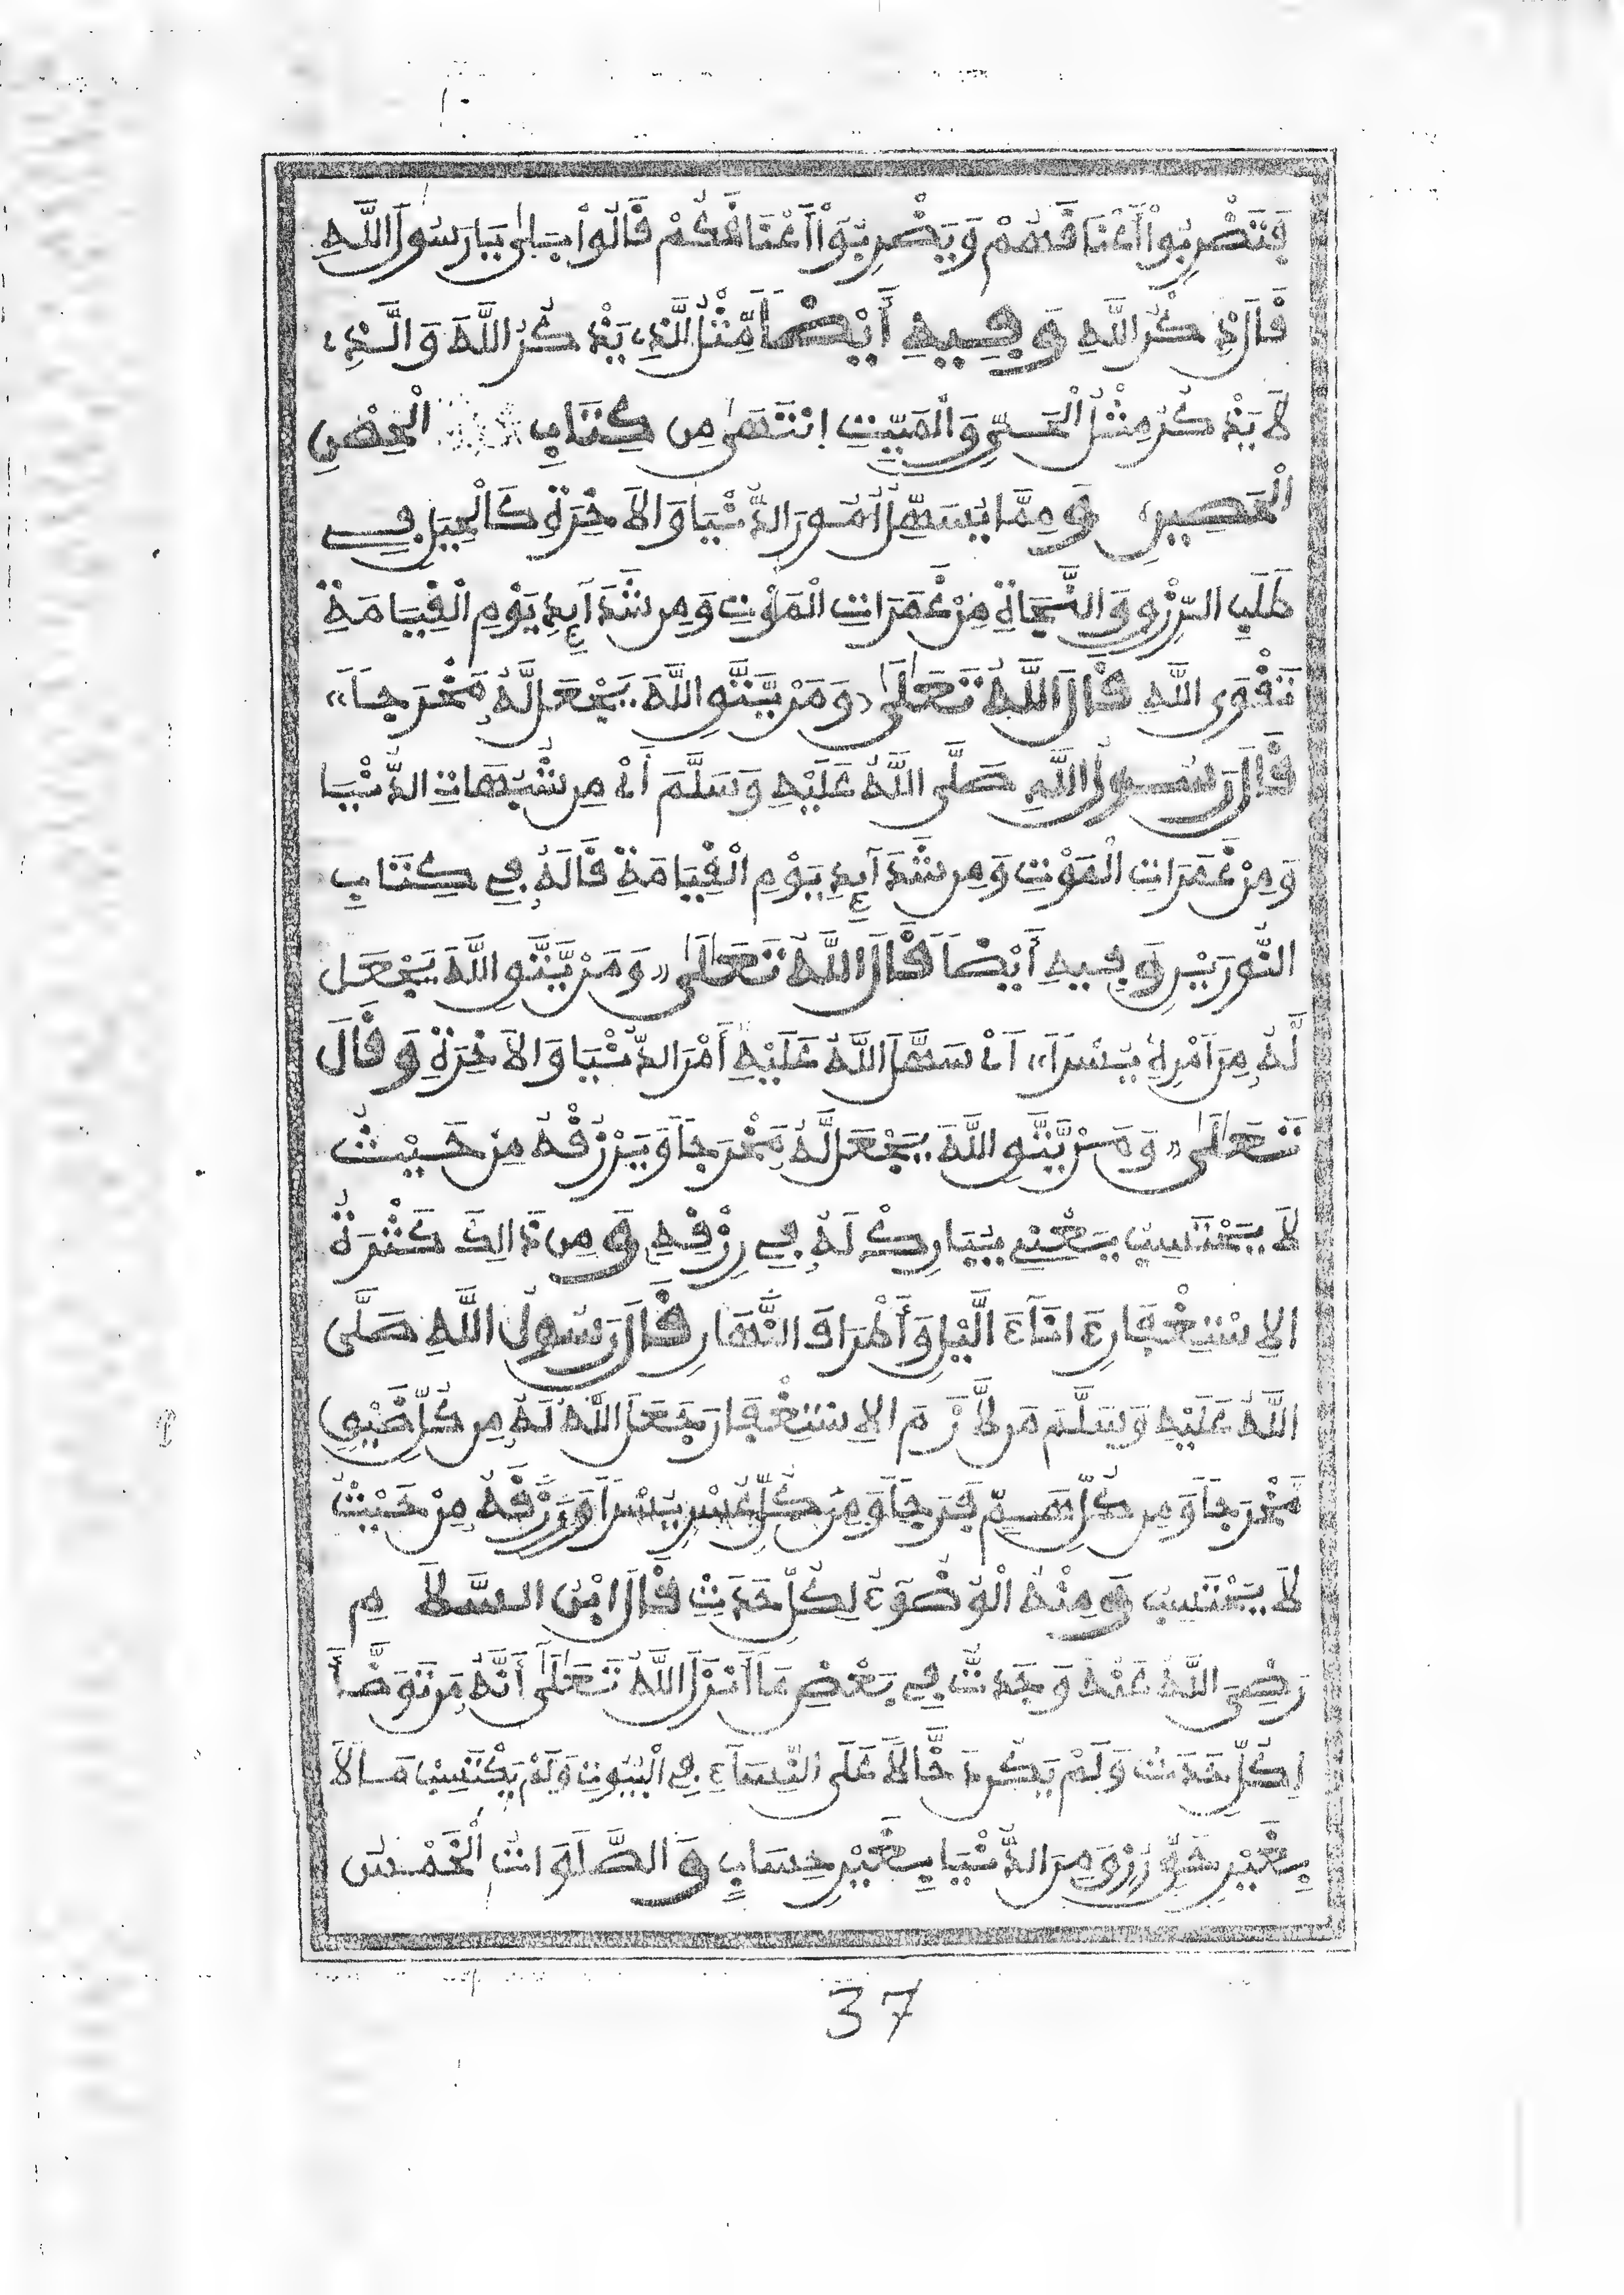 فَتَضْرِبُواْ أَعْنَافَهُمْ وَيَضْرِبُوَاْ أَعْنَافَكُمْ فَالُواْ بَلَىٰ يَا رَسُولَ اللَّهِ
فَالَ ذِكْرُ اللَّهِ وَفِيهِ أَيْضًا مِّثْلُ الَّذِے يَذْكُرُ اللَّهَ وَالَّذِے
لَا يَذْكُرُ مِثْلُ الْحَيِّ وَالْمَيِّتِ اِنْتَهَىٰ مِن كِتَابِ الْحِصْنِ
الْحَصِينِ وَمِمَّا يُسَهِّلُ أُمُورَ الدُّنْيَا وَالَاخِرَةِ كَالْحِيَلِ فِے
طَلَبِ الرِّزْقِ وَالنَّجَاةِ مِنْ غَمَرَاتِ الْمَوْتِ وَمِن شَدَآئِدِ يَوْمِ الْفِيَامَةِ
تَفْوَى اللَّهِ فَالَ اللَّهُ تَعَالَىٰ «وَمَنْ يَّتَّقِ اللَّهَ يَجْعَل لَّهُ مَخْرَجاً»
فَالَ رَسُولُ اللَّهِ صَلَّى اللَّهُ عَلَيْهِ وَسَلَّمَ أَيْ مِن شُبُهَاتِ الدُّنْيَا
وَمِنْ غَمَرَاتِ الْمَوْتِ وَمِن شَدَآئِدِ يَوْمِ الْفِيَامَةِ فَالَهُ فِے كِتَابِ
النُّورَيْنِ وَفِيهِ أَيْضًا فَالَ اللَّهُ تَعَالَىٰ «وَمَنْ يَّتَّقِ اللَّهَ يَجْعَل
لَّهُ مِنَ اَمْرِهِ يُسْراً» اَيْ سَهَّلَ اللَّهُ عَلَيْهِ أَمْرَ الدُّنْيَا وَالَاخِرَةِ وَفَالَ
تَعَالَىٰ «وَمَنْ يَّتَّقِ اللَّهَ يَجْعَل لَّهُ مَخْرَجاً وَيَرْزُفْهُ مِنْ حَيْثُ
لَا يَحْتَسِبُ يَعْنِے يُبَارِكْ لَهُ فِے رِزْفِهِ وَمِن ذَالِكَ كَثْرَةُ
الِاسْتِغْفَارِ ءَانَآءَ الَّيْلِ وَأَطْرَافَ النَّهَارِ فَالَ رَسُولُ اللَّهِ صَلَّى
اللَّهُ عَلَيْهِ وَسَلَّمَ مَن لَّازَمَ الِاسْتِغْفَارَ جَعَلَ اللَّهُ لَهُ مِن كُلِّ ضَيْقٍ
مَّخْرَجاً وَمِن كُلِّ هَمٍّ فَرَجاً وَمِن كُلِّ عُسْرٍ يُسْراً وَرَزَفَهُ مِنْ حَيْثُ
لَا يَحْتَسِبُ وَمِنْهُ الْوُضُوٓءُ لِكُلِّ حَدَثٍ فَالَ ابْنُ السَّلَامِ
رَضِىَ اللَّهُ عَنْهُ وَجَدتُّ فِے بَعْضِ مَآ أَنزَلَ اللَّهُ تَعَالَىٰ أَنَّهُ مَن تَوَضَّأَ
لِكُلِّ حَدَثٍ وَلَمْ يَكُن دَخَّالاً عَلَى النِّسَآءِ فِے الْبُيُوتِ وَلَمْ يَكْتَسِبْ مَالاً
بِغَيْرِ حَقٍّ رُزِقَ مِنَ الدُّنْيَا بِغَيْرِ حِسَابٍ وَالصَّلَوَاتُ الْخَمْسُ
37